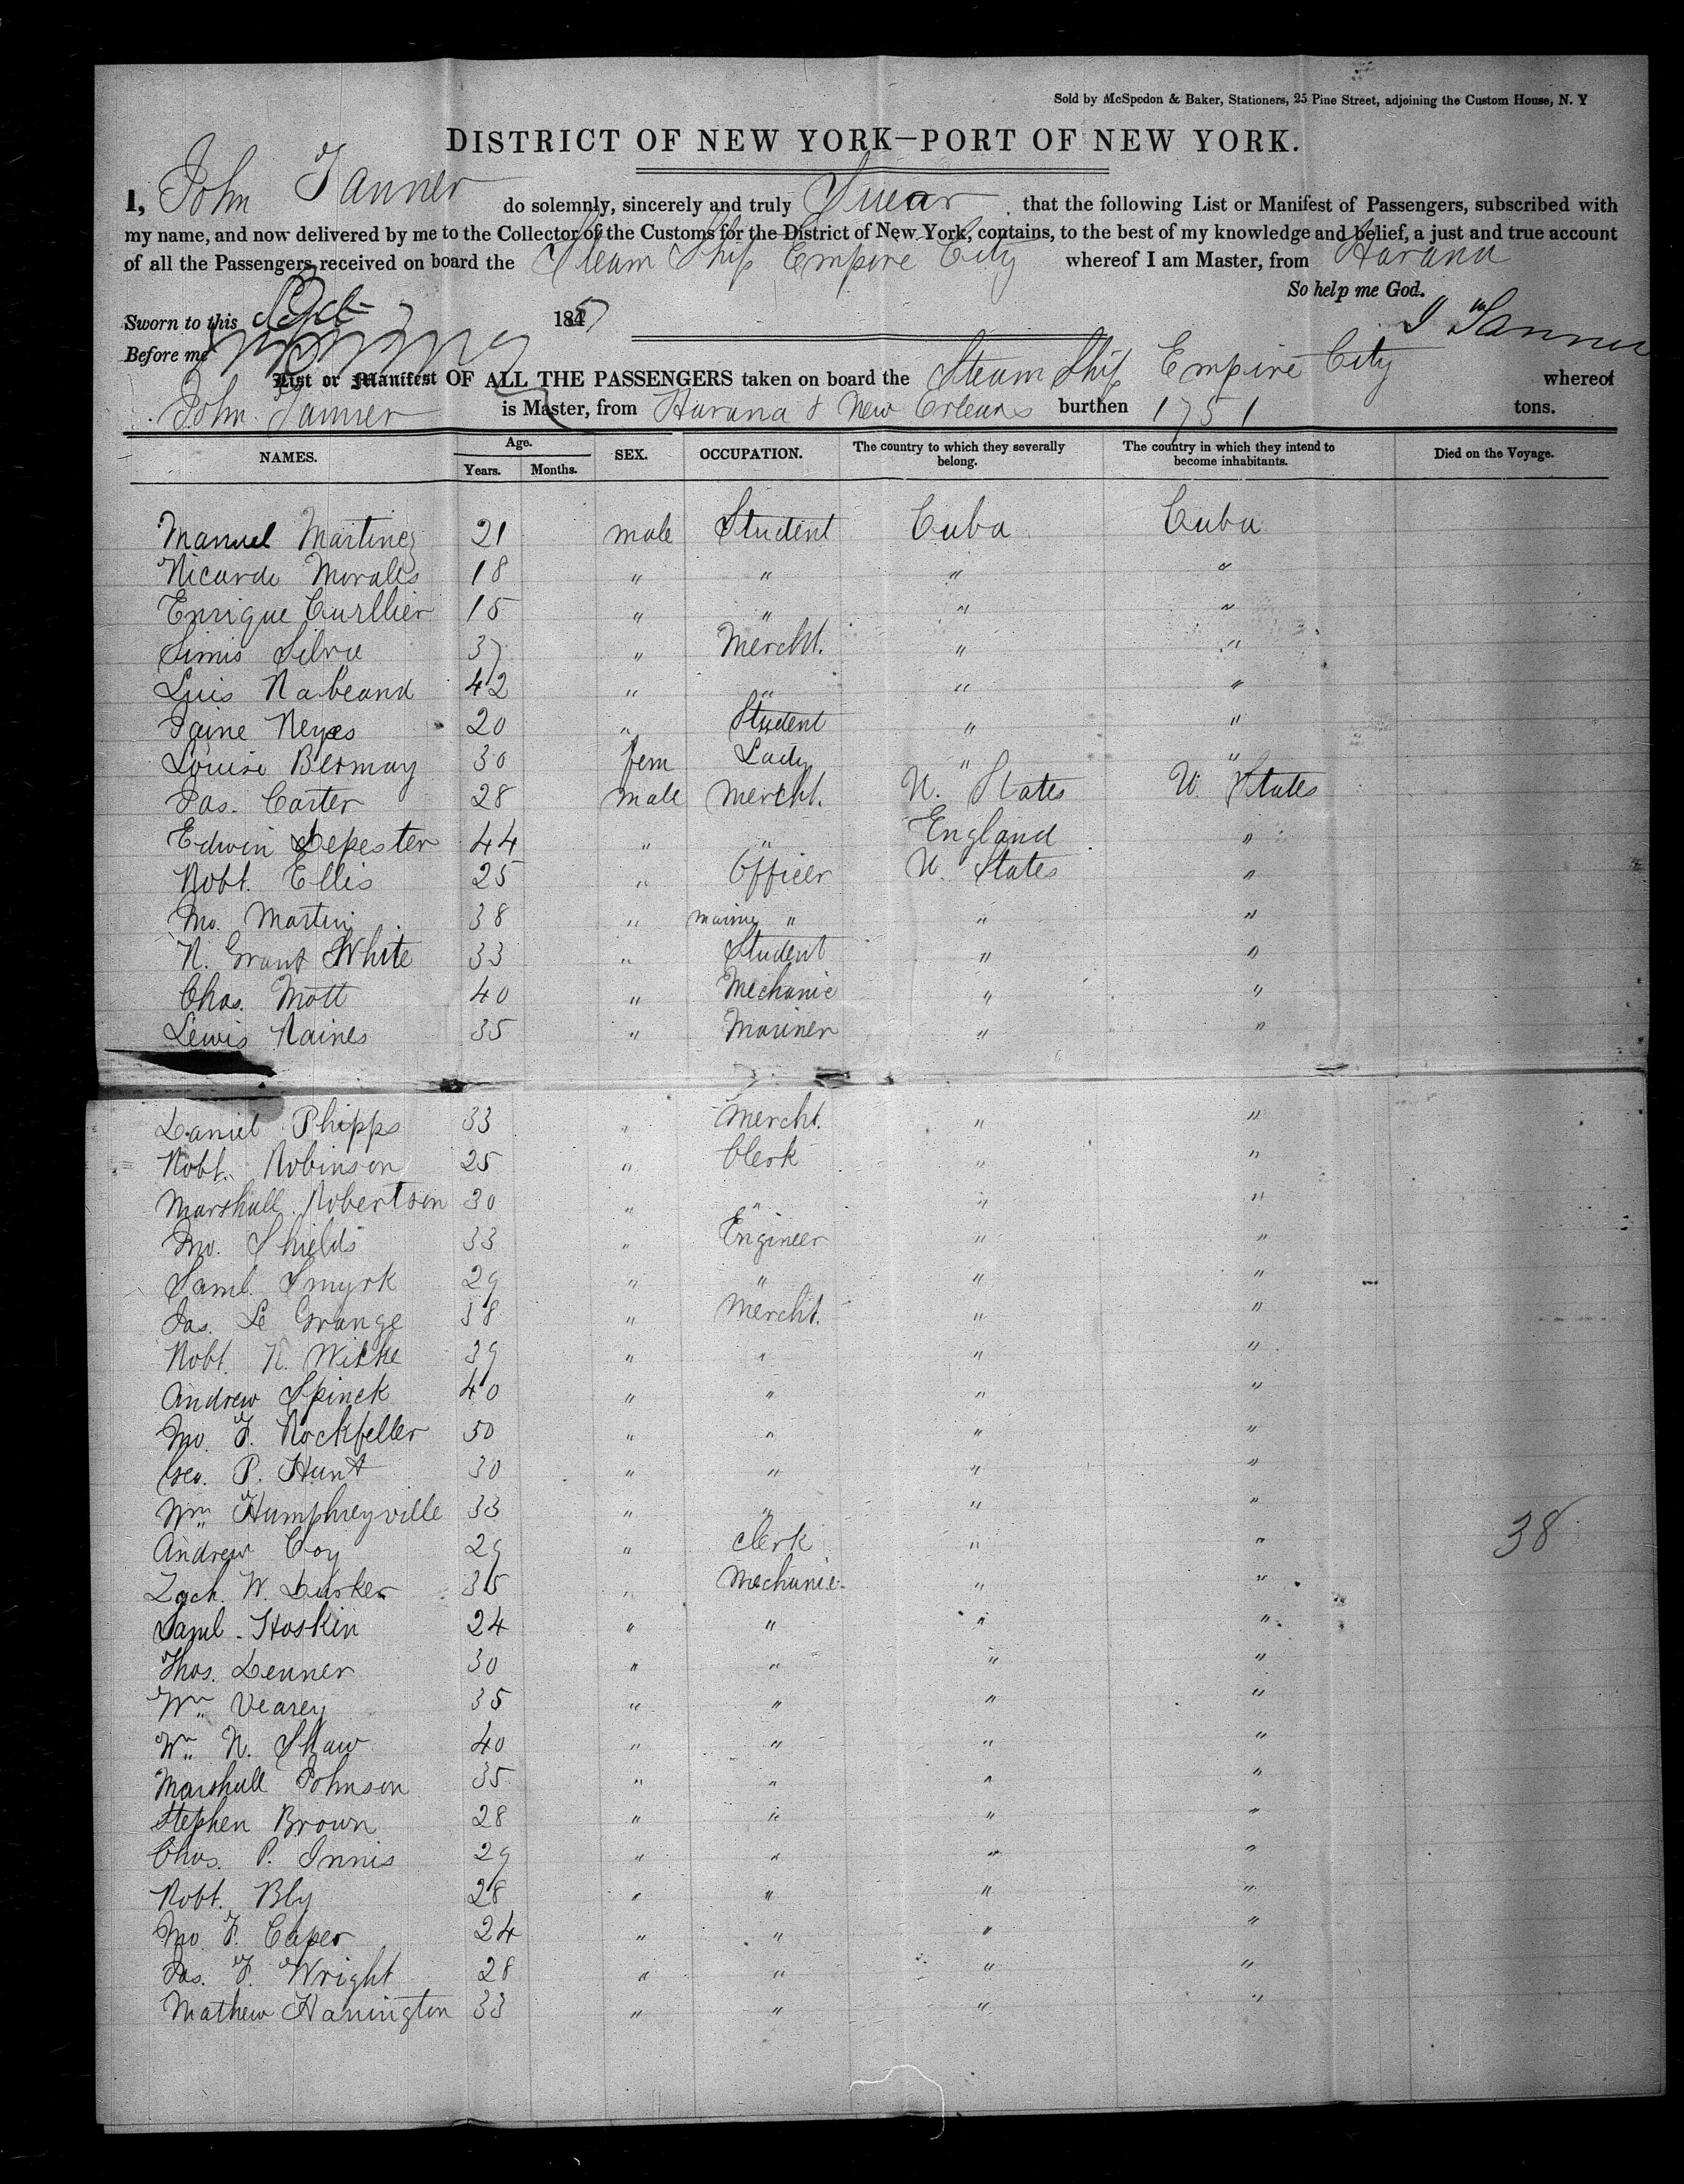 Sold by McSpedon & Baker, Stationers, 25 Pine Street, adjoining the Custom House, N. Y
DISTRICT OF NEW YORK—PORT OF NEW YORK.
I, John Tanner do solemnly, sincerely and truly Swear that the following List or Manifest of Passengers, subscribed with
my name, and now delivered by me to the Collector of the Customs for the District of New York, contains, to the best of my knowledge and belief, a just and true account
of all the Passengers received on board the Steam Ship Empire City whereof I am Master, from Havana
So help me God.
Sworn to this Sept 185
J Tanner
Before me
List or Manifest OF ALL THE PASSENGERS taken on board the Steam Ship Empire City whereof
John Tanner is Master, from Havana & New Orleans burthen 1751 tons.
NAMES. Age. Years. Months. SEX. OCCUPATION. The country to which they severally belong. The country in which they intend to become inhabitants. Died on the Voyage.
Manuel Martinez 21 male Student Cuba Cuba
Ricardo Morales 18 " " " "
Enrique 15 " " " "
Silva 37 " Mercht. " "
Luis 42 " " " "
Reyes 20 " Student " "
Louise Bermay 30 fem Lady " "
Jas. Carter 28 male mercht. U. States U. States
Edwin Depester 44 " " England "
Robt. Ellis 25 " Officer U. States "
Jno. Martin 38 " " " "
R. Grant White 33 " Student " "
Chas. Mott 40 " Mechanic " "
Lewis Raines 35 " Mariner " "
Daniel Phipps 33 " Mercht. " "
Robt. Robinson 25 " Clerk " "
Marshall Robertson 30 " " " "
Jno. Shields 33 " Engineer " "
Saml. Smyrk 29 " " " "
Jas. Le Grange 38 " Mercht. " "
Robt. R. Wilkie 39 " " " "
Andrew Spinck 40 " " " "
Jno. F. Rockfeller 50 " " " "
Geo. P. Hunt 30 " " " "
Wm. Humphreyville 33 " " " "
Andrew Coy 29 " Clerk " " 38
Zach. W. Dusker 35 " Mechanic " "
Saml. Hoskin 24 " " " "
Thos. Denner 30 " " " "
Wm. Vearey 35 " " " "
Wm. R. Shaw 40 " " " "
Marshall Johnson 35 " " " "
Stephen Brown 28 " " " "
Chas. P. Innis 29 " " " "
Robt. Bly 28 " " " "
Jno. F. Caper 24 " " " "
Jas. F. Wright 28 " " " "
Mathew Hanington 33 " " " "